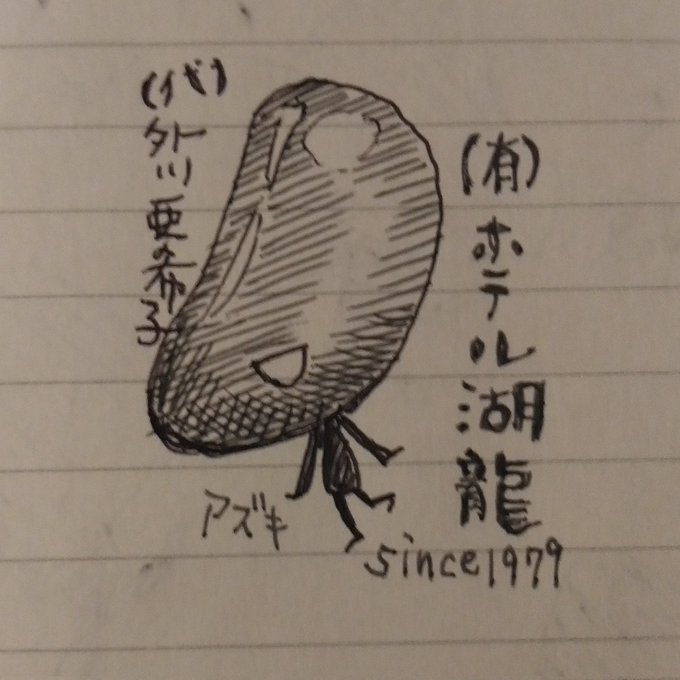 (有)ホテル湖龍
since1979
(代)外川亜希子
アズキ